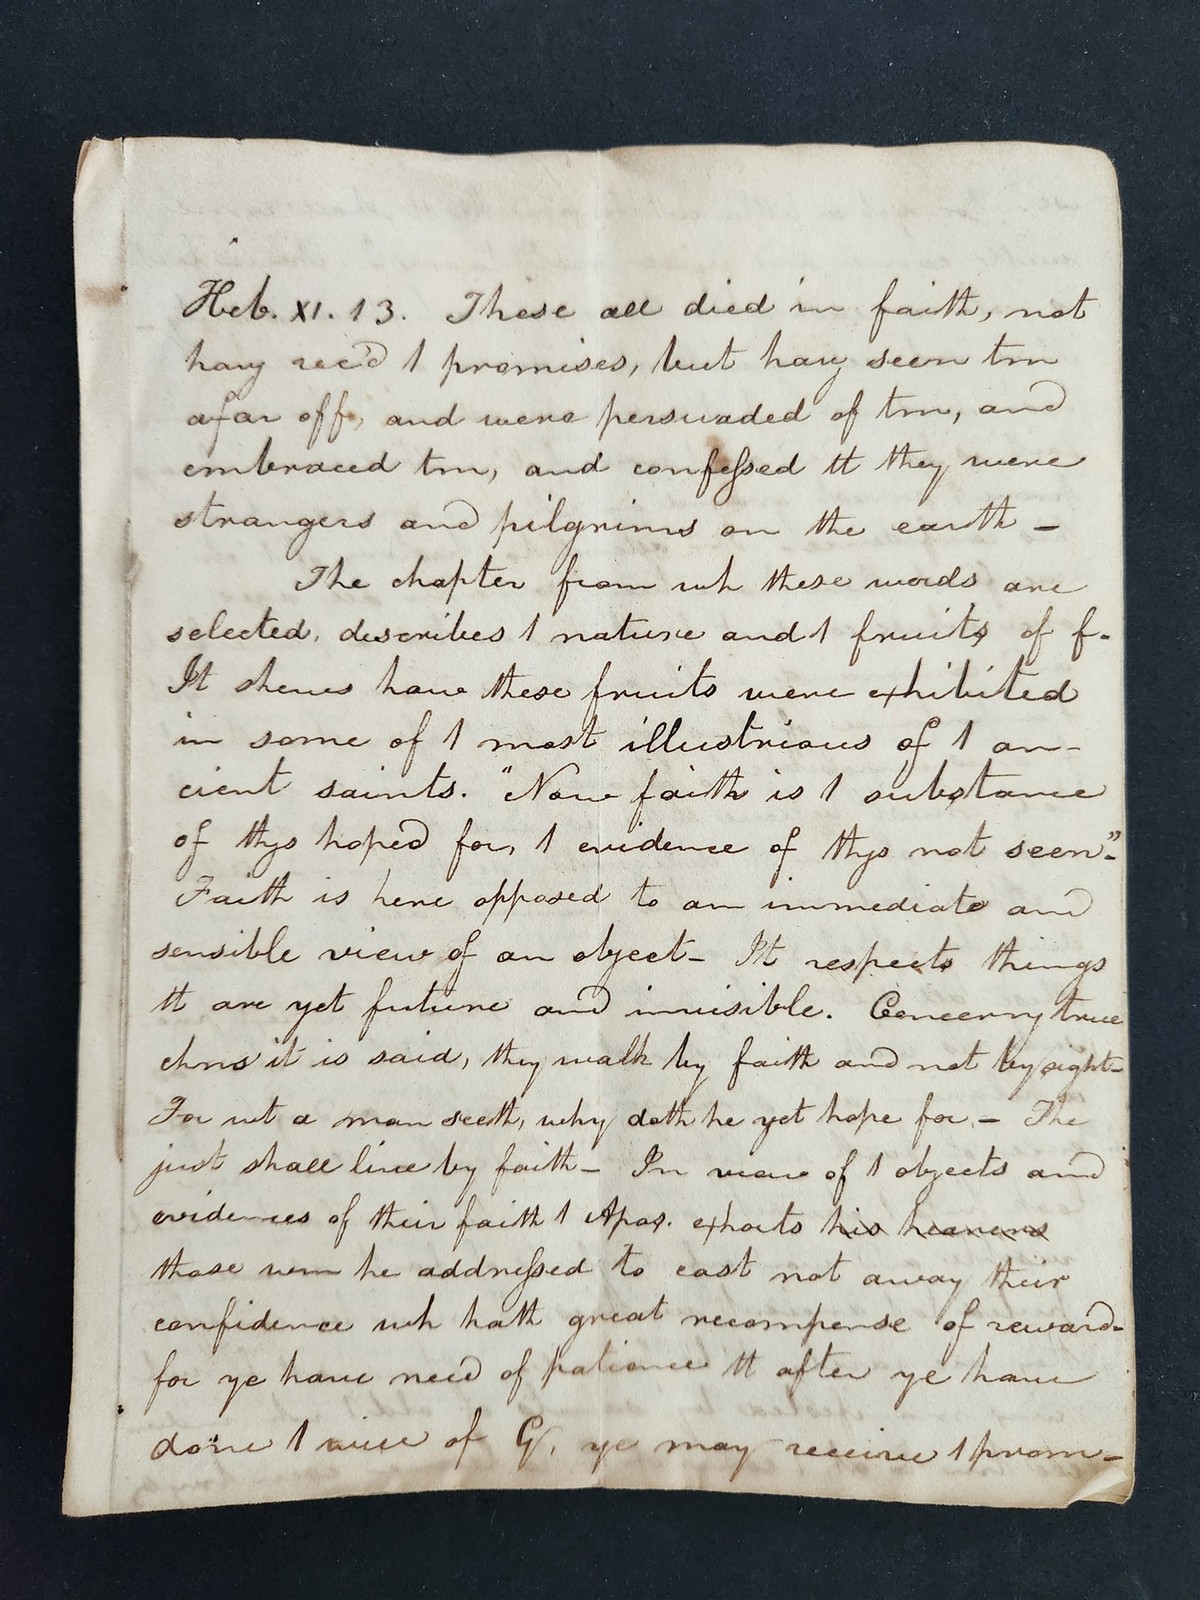 Heb. XI. 13. These all died in faith, not
havg rec'd 1 promises, but havg seen tm
afar off, and were persuaded of tm, and
embraced tm, and confessed tt they were
strangers and pilgrims on the earth –
The chapter from wh these words are
selected, describes 1 nature and 1 fruits of f-
It shews how these fruits were exhibited
in some of 1 most illustrious of 1 an-
cient saints. "Now faith is 1 substance
of thgs hoped for, 1 evidence of thgs not seen"-
Faith is here opposed to an immediate and
sensible view of an object – It respects things
tt are yet future and invisible. Concerng true
chrns it is said, they walk by faith and not by sight –
For wt a man seeth, why doth he yet hope for – The
just shall live by faith – In view of 1 objects and
evidences of their faith 1 Apos. exhorts his hearers
those wm he addressed to cast not away their
confidence wh hath great recompense of reward-
for ye have need of patience tt after ye have
done 1 will of G, ye may receive 1 prom-